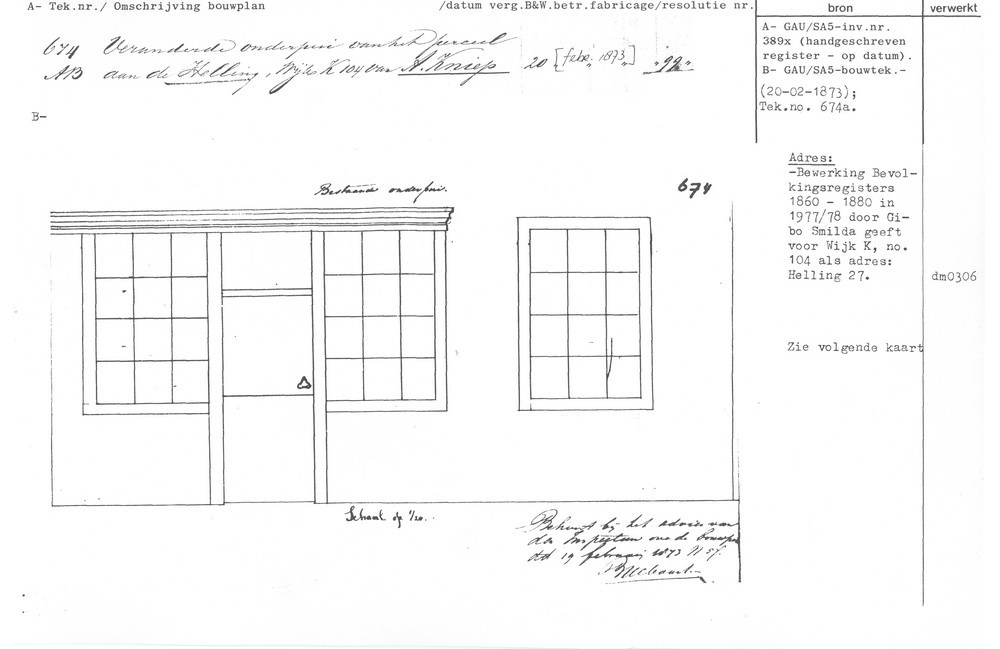 A- Tek.nr./ Omschrijving bouwplan /datum verg.B&W.betr.fabricage/resolutie nr.
bron
verwerkt
674 Veranderde onderpui van het perceel
AB aan de Helling, Wijk K 104 van A. Kniep 20 [febr. 1873] "92".
A- GAU/SA5-inv.nr.
389x (handgeschreven
register - op datum).
B- GAU/SA5-bouwtek.-
(20-02-1873);
Tek.no. 674a.
B-
Adres:
-Bewerking Bevol-
kingsregisters
1860 - 1880 in
1977/78 door Gi-
bo Smilda geeft
voor Wijk K, no.
104 als adres:
Helling 27.
dm0306
Zie volgende kaart
Bestaande onderpui.
674
Schaal op 1/20.
Behoort bij het advies van
den Inspecteur
dd 19 februarij 1873 N 57.